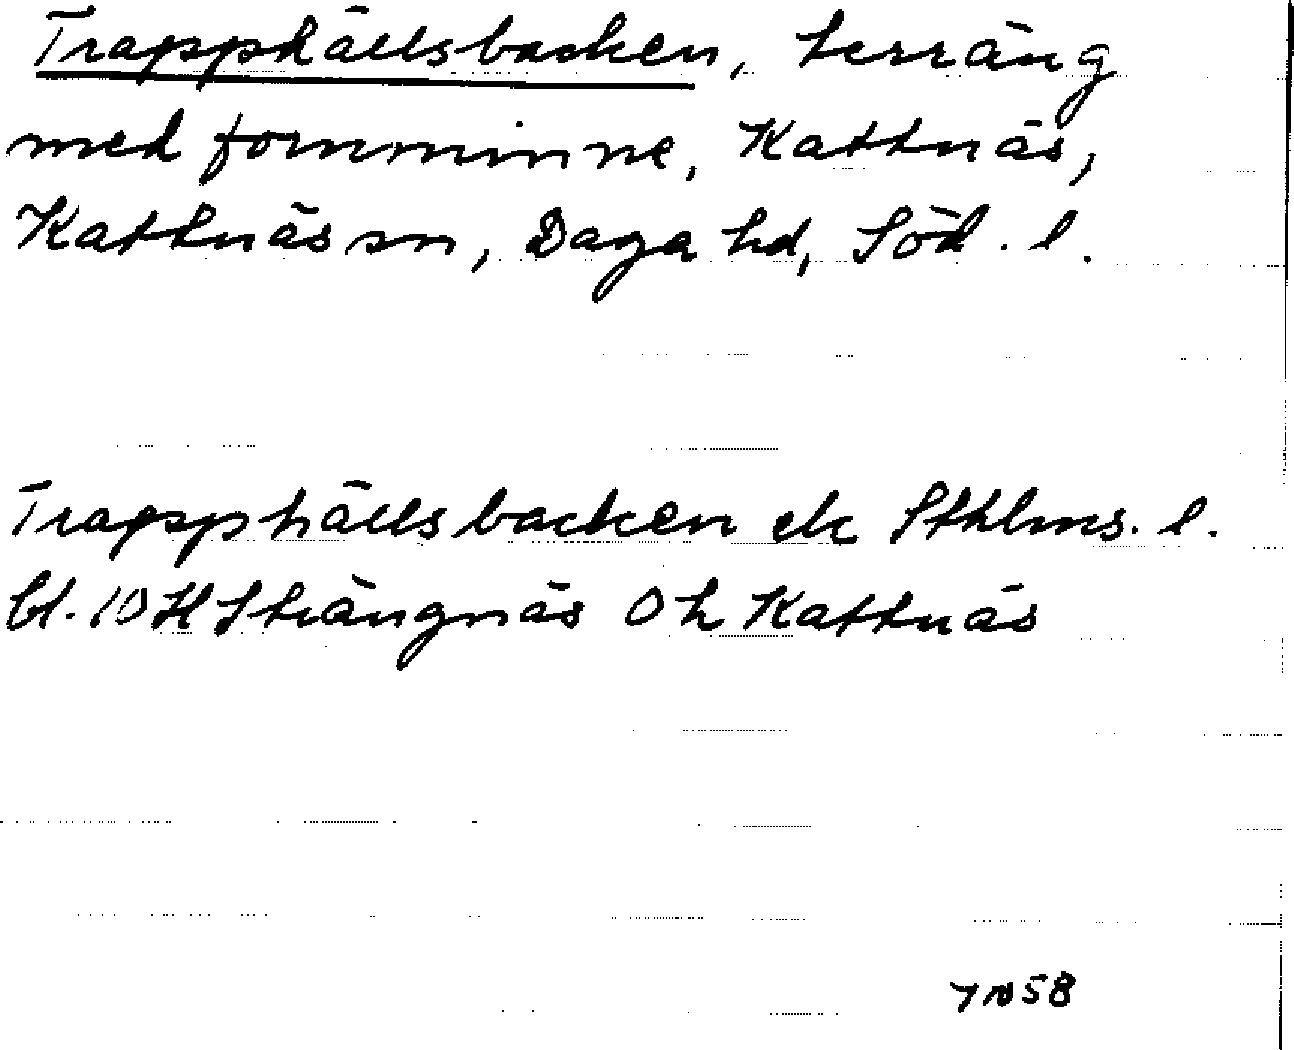 Trapphällsbacken, terräng
med fornminne, Kattnäs,
Kattnäs sn, Daga hd, Söd. l.
Trapphällsbacken ek Sthlms. l.
bl. 10 H Strängnäs 0 h Kattnäs